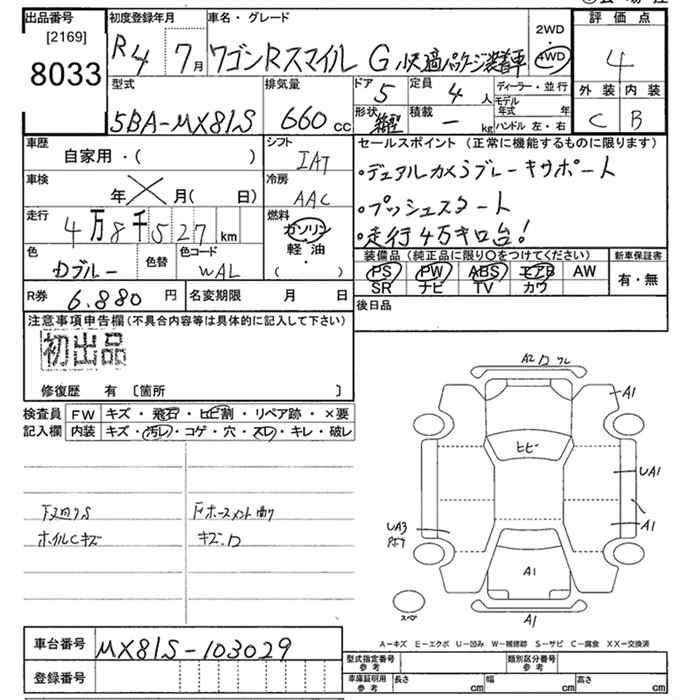 出品番号
[2169]
8033
初度登録年月
R4 7月
車名・グレード
ワゴンRスマイル G 快適パッケージ装着車
2WD
・
4WD
評価点
4
外装 内装
C B
型式
5BA-MX81S
排気量
660 cc
ドア
5
定員
4 人
ディーラー・並行
モデル
年式 年
ハンドル 左・右
形状
積載
- kg
車歴
自家用・( )
シフト
IAT
車検
年 月( 日)
冷房
AAC
走行
4万8千527 km
燃料
ガソリン
軽油
・
( )
色
Dブルー
色替
色コード
WAL
R券
6.880 円
名変期限 月 日
セールスポイント(正常に機能するものに限ります)
・デュアルカメラブレーキサポート
・プッシュスタート
・走行4万キロ台!
装備品(純正品に限り○をつけてください)
新車保証書
PS PW ABS エアB AW
SR ナビ TV カワ
有・無
後日品
注意事項申告欄(不具合内容等は具体的に記入して下さい)
初出品
修復歴 有〔箇所 〕
検査員 FW キズ・飛石・ヒビ割・リペア跡・×要
記入欄 内装 キズ・汚レ・コゲ・穴・スレ・キレ・破レ
下廻りS
ホイルCキズ
キズ.ワ
A2 ワ ワレ
A1
ヒビ
UA1
A1
UA3
A1
スペア
A1
A-キズ E-エクボ U-凹み W-補修跡 S-サビ C-腐食 XX-交換済
車台番号
MX81S-103029
登録番号
型式指定番号
参考
類別区分番号
参考
車庫証明用
参考
長さ cm 幅 cm 高さ cm